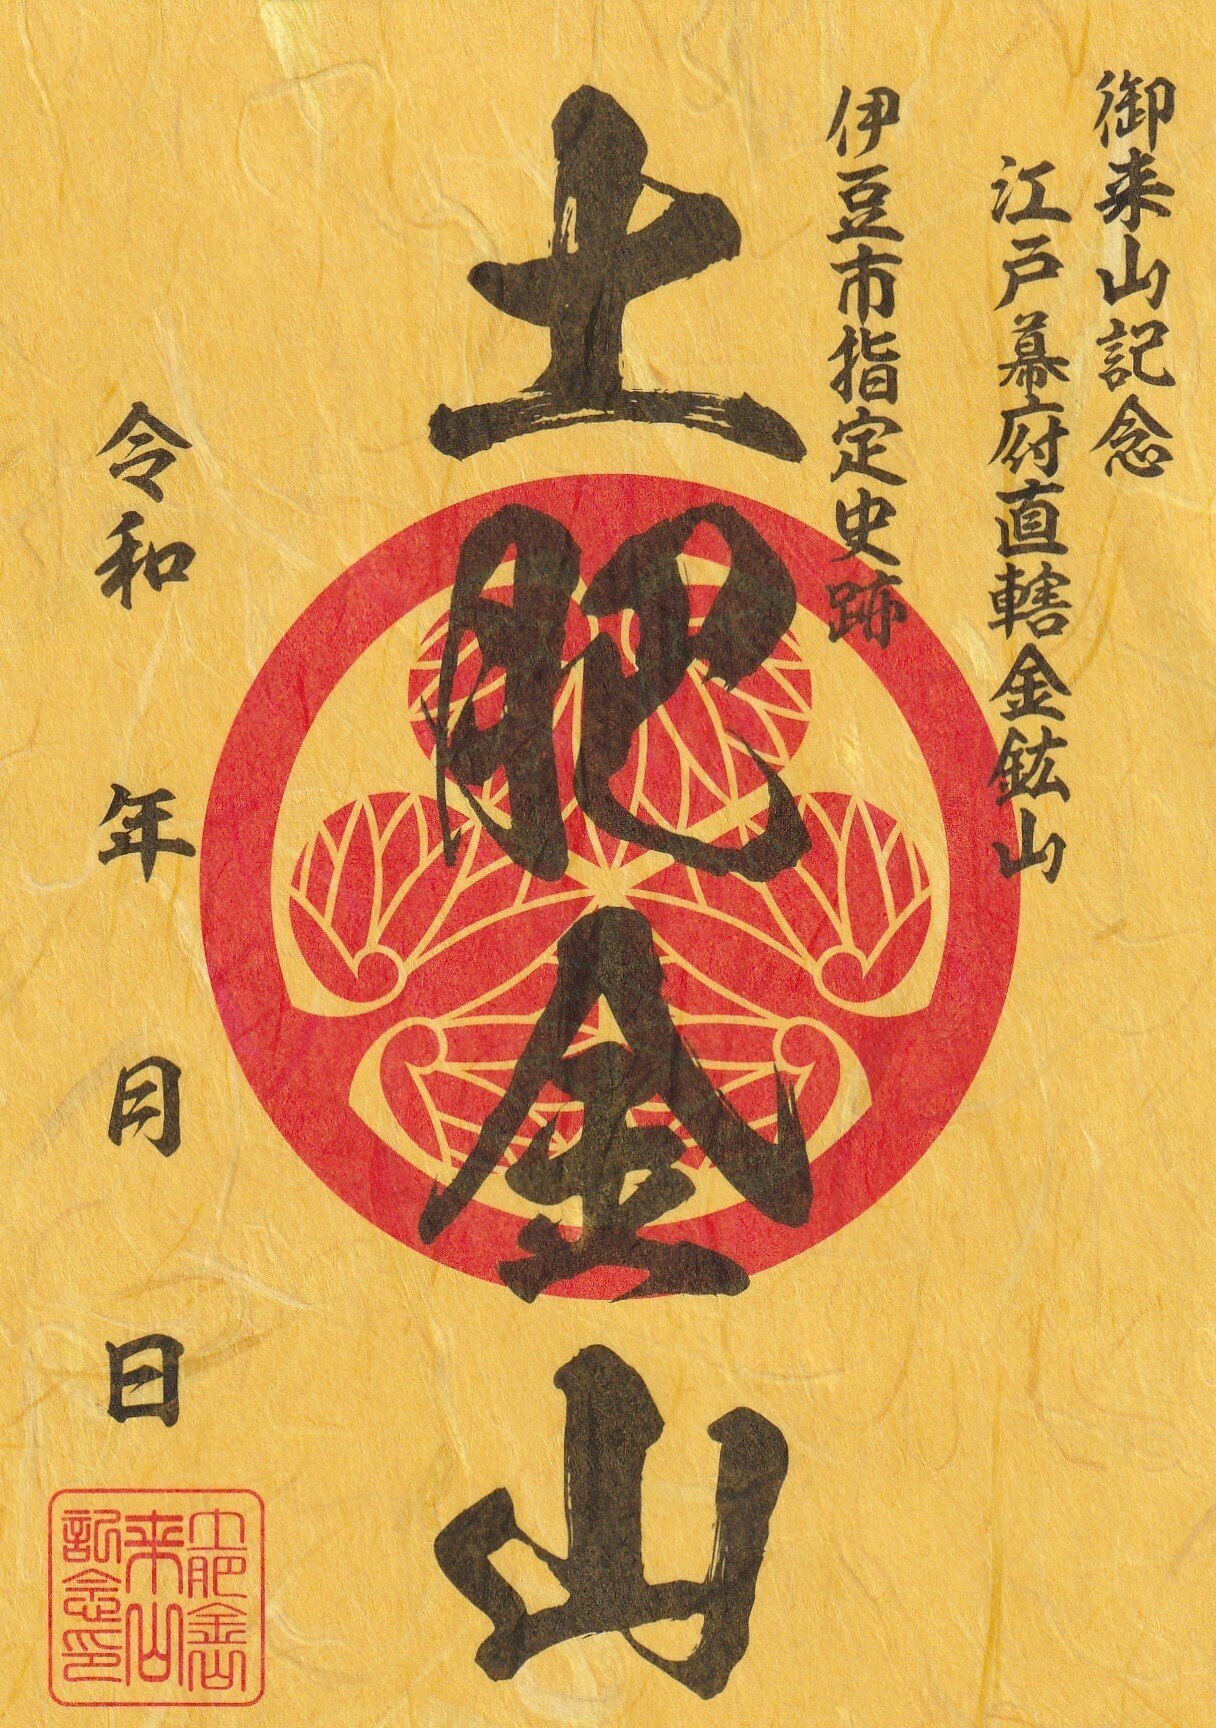 御来山記念
江戸幕府直轄金鉱山
伊豆市指定史跡
土肥金山
令和 年 月 日
土肥金山
来山
記念印